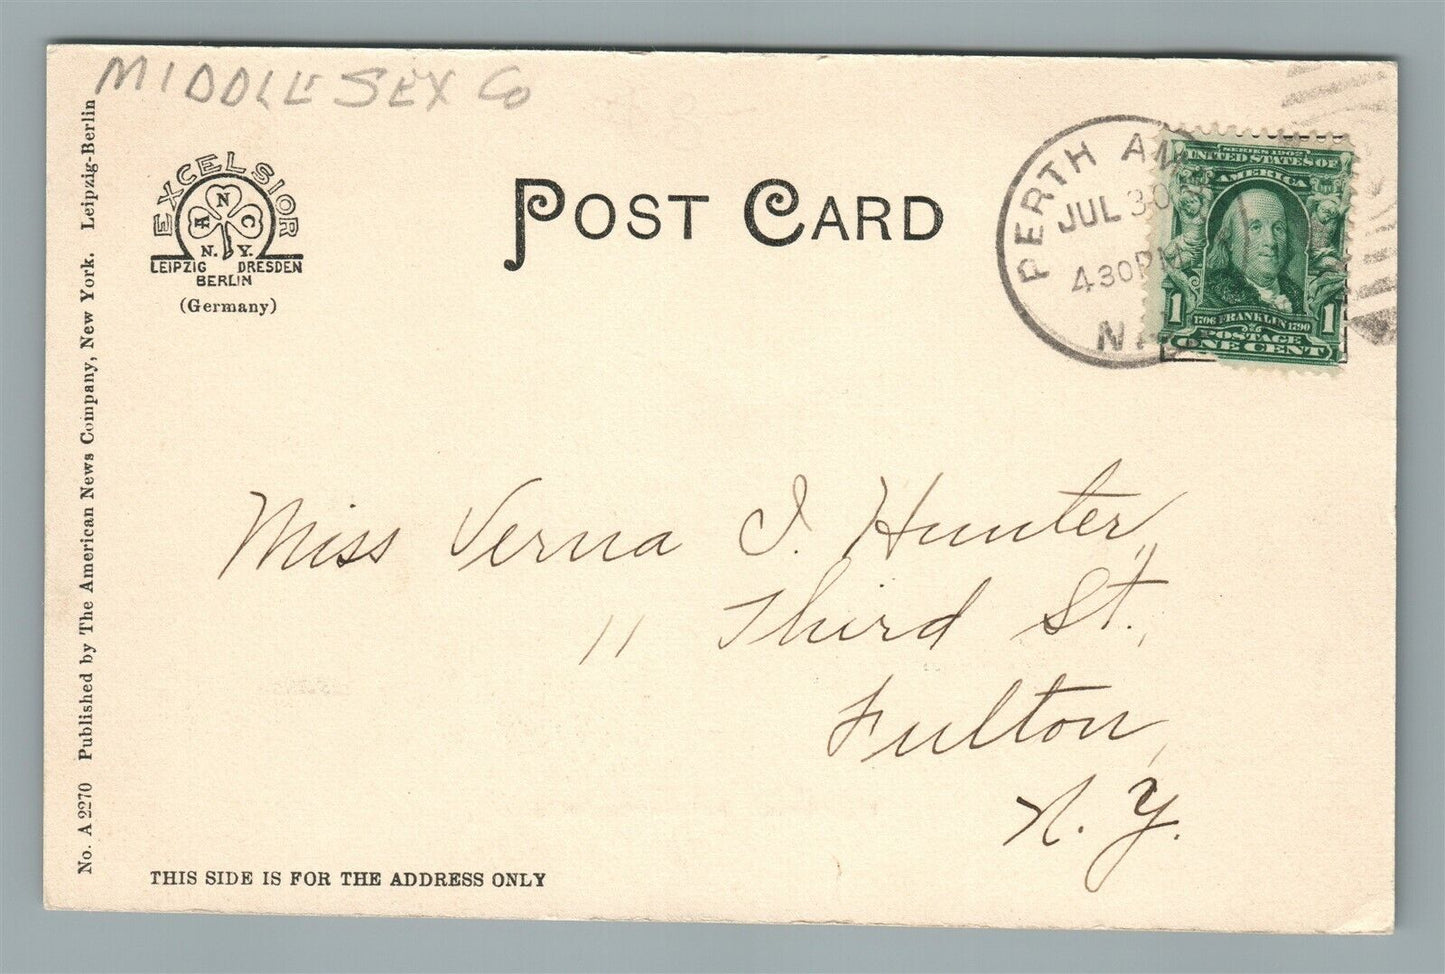 MIDDLESEX Co
EXCELSIOR
A N C
N. Y.
LEIPZIG DRESDEN
BERLIN
(Germany)
POST CARD
PERTH AM
JUL 30
4 30 PM
N
SERIES 1902
UNITED STATES OF
AMERICA
1 1
1706 FRANKLIN 1790
POSTAGE
ONE CENT
Miss Verna I. Hunter,
11 Third St.,
Fulton,
N. Y.
THIS SIDE IS FOR THE ADDRESS ONLY
No. A 2270 Published by The American News Company, New York. Leipzig-Berlin